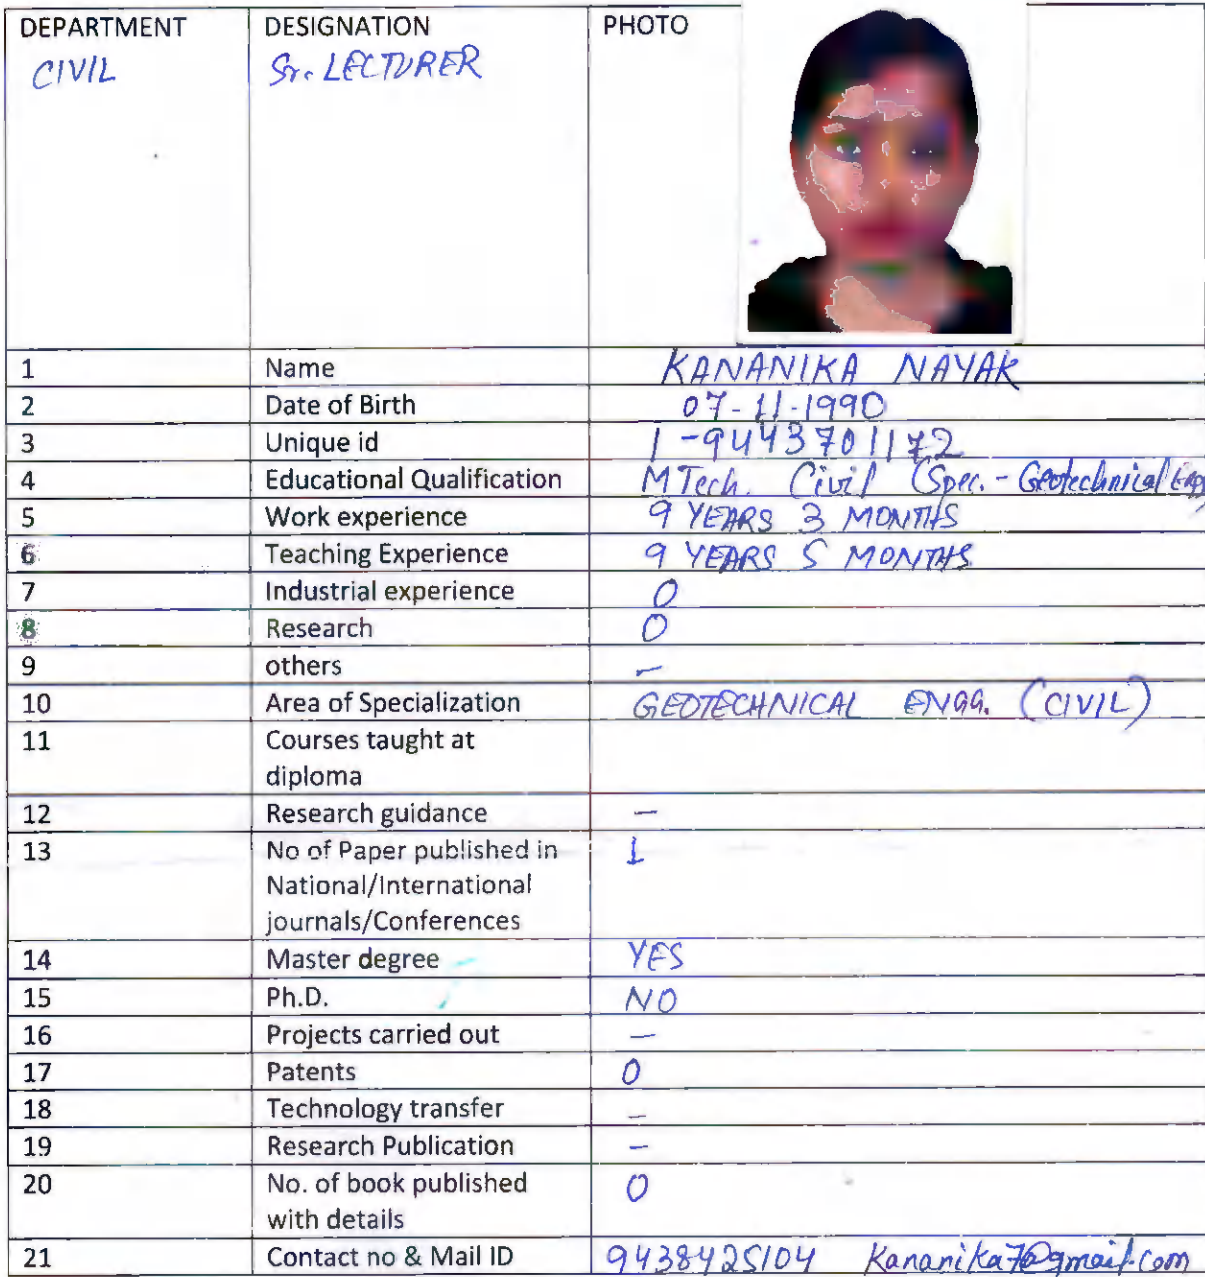 DEPARTMENT DESIGNATION PHOTO
CIVIL Sr. LECTURER
1 Name KANANIKA NAYAK
2 Date of Birth 07-11-1990
3 Unique id 1-9443701172
4 Educational Qualification MTech. Civil (Spec. - Geotechnical Engg)
5 Work experience 9 YEARS 3 MONTHS
6 Teaching Experience 9 YEARS 5 MONTHS
7 Industrial experience 0
8 Research 0
9 others -
10 Area of Specialization GEOTECHNICAL ENGG. (CIVIL)
11 Courses taught at
diploma
12 Research guidance -
13 No of Paper published in 1
National/International
journals/Conferences
14 Master degree YES
15 Ph.D. NO
16 Projects carried out -
17 Patents 0
18 Technology transfer -
19 Research Publication -
20 No. of book published 0
with details
21 Contact no & Mail ID 9438425104 Kananika7@gmail.com